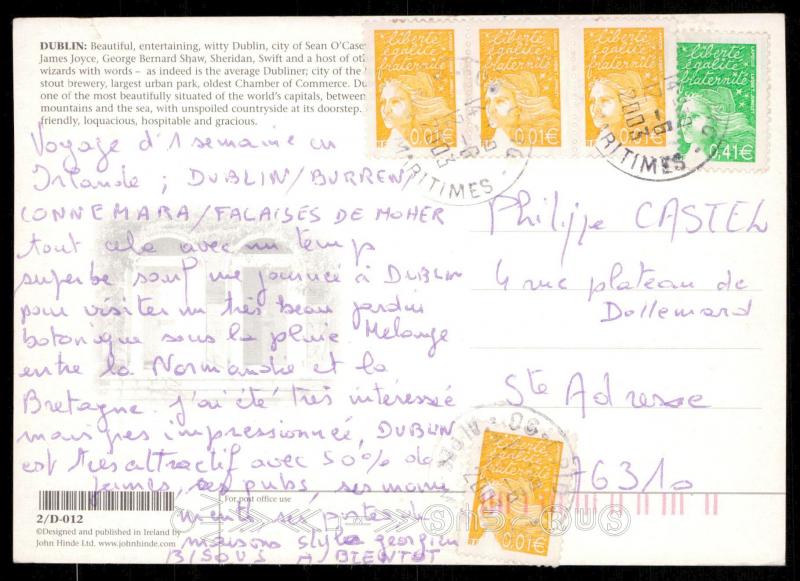 DUBLIN: Beautiful, entertaining, witty Dublin, city of Sean O'Casey
James Joyce, George Bernard Shaw, Sheridan, Swift and a host of oth
wizards with words – as indeed is the average Dubliner; city of the
stout brewery, largest urban park, oldest Chamber of Commerce. Du
one of the most beautifully situated of the world's capitals, between
mountains and the sea, with unspoiled countryside at its doorstep.
friendly, loquacious, hospitable and gracious.
liberté égalité fraternité
RF 0,01€
liberté égalité fraternité
RF 0,01€
liberté égalité fraternité
RF 0,01€
liberté égalité fraternité
0,41€
2003
MARITIMES
2003
MARITIMES
Voyage d'1 semaine en
Irlande ; DUBLIN/BURREN/
CONNEMARA/FALAISES DE MOHER
tout cela avec un temps
superbe sauf une journée à DUBLIN
pour visiter un très beau jardin
botanique sous la pluie. Mélange
entre la Normandie et la
Bretagne. j'ai été très intéressé
mais pas impressionné, DUBLIN
est très attractif avec 50% de
jeunes, ses pubs, ses monu
ments ses portes de
maisons style georgien
BISOUS A/BIENTOT
Philippe CASTEL
4 rue plateau de
Dollemard
Ste Adresse
76310
liberté égalité fraternité
RF 0,01€
For post office use
2/D-012
©Designed and published in Ireland by
John Hinde Ltd. www.johnhinde.com